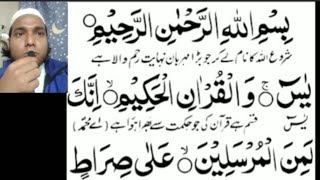 بِسْمِ اللهِ الرَّحْمٰنِ الرَّحِيْمِ
شروع اللہ کا نام لے کر جو بڑا مہربان نہایت رحم والا ہے
يٰسٓ وَالْقُرْاٰنِ الْحَكِيْمِ اِنَّكَ
یٰسٓ قسم ہے قرآن کی جو حکمت سے بھرا ہوا ہے (اے محمدؐ)
لَمِنَ الْمُرْسَلِيْنَ عَلٰى صِرَاطٍ